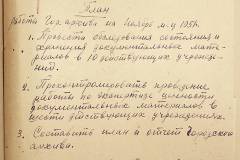 План
работы Гос. архива на Ноябрь м-ц 1951.
1. Провести обследования состояния и
хранения документальных мате-
риалов в 10 действующих учрежде-
ний.
2. Проконтролировать проведение
работы по экспертизе ценности
документальных материалов в
шести действующих учреждениях.
3. Составить план и отчет Городского
архива.